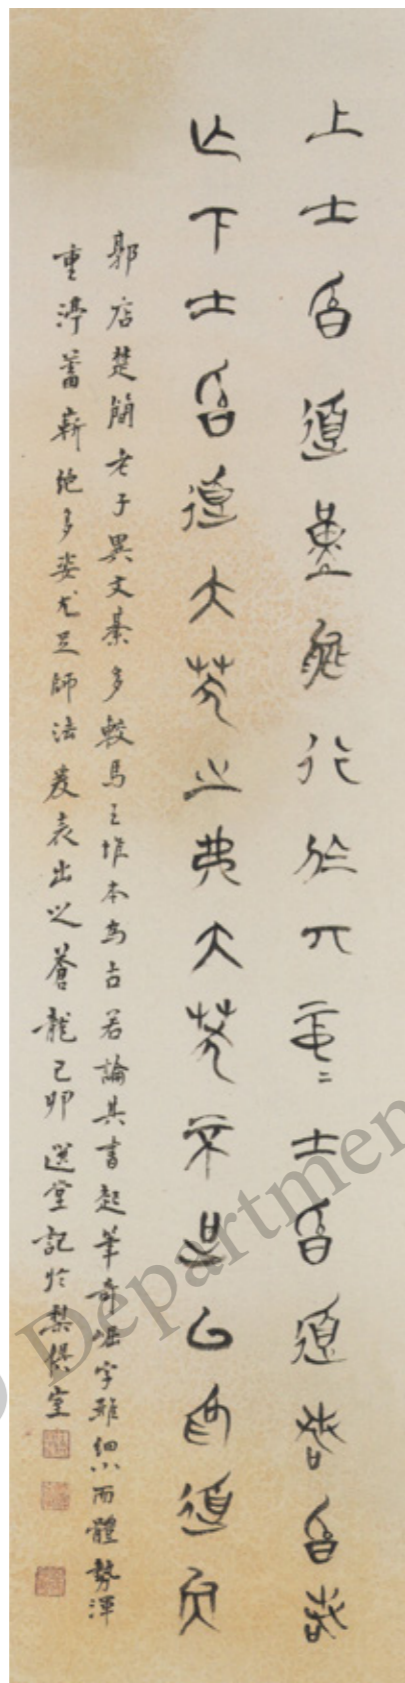 上士昏道堇能行於丌中=士昏道若昏若
亡下士昏道大芺之弗大芺不足以為道矣
郭店楚簡老子異文綦多較馬王堆本為古若論其書起筆奇崛字雖細小而體勢渾
重渟蓄嶄絕多姿尤足師法爰表出之蒼龍己卯選堂記於梨俱室
© Departmen